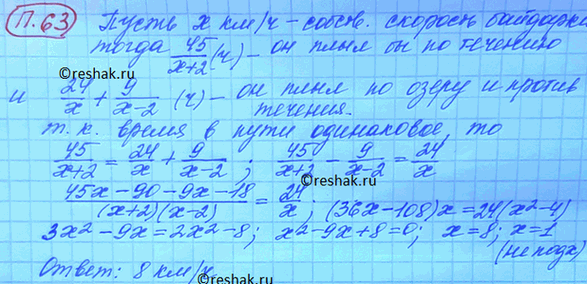 П.63 Пусть x км/ч – собств. скорость байдарки
тогда 45/(x+2) (ч) – он плыл бы по течению
©reshak.ru
и 24/x + 9/(x-2) (ч) – он плыл по озеру и против
течения.
т.к. время в пути одинаковое, то
45/(x+2) = 24/x + 9/(x-2); 45/(x+2) - 9/(x-2) = 24/x
(45x-90-9x-18)/((x+2)(x-2)) = 24/x; (36x-108)x=24(x²-4)
3x²-9x=2x²-8; x²-9x+8=0; x=8; x=1
(не подх)
Ответ: 8 км/ч
©reshak.ru